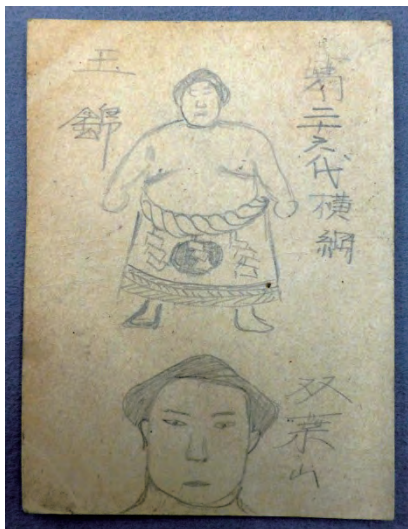 第二十六代横綱
玉錦
双葉山